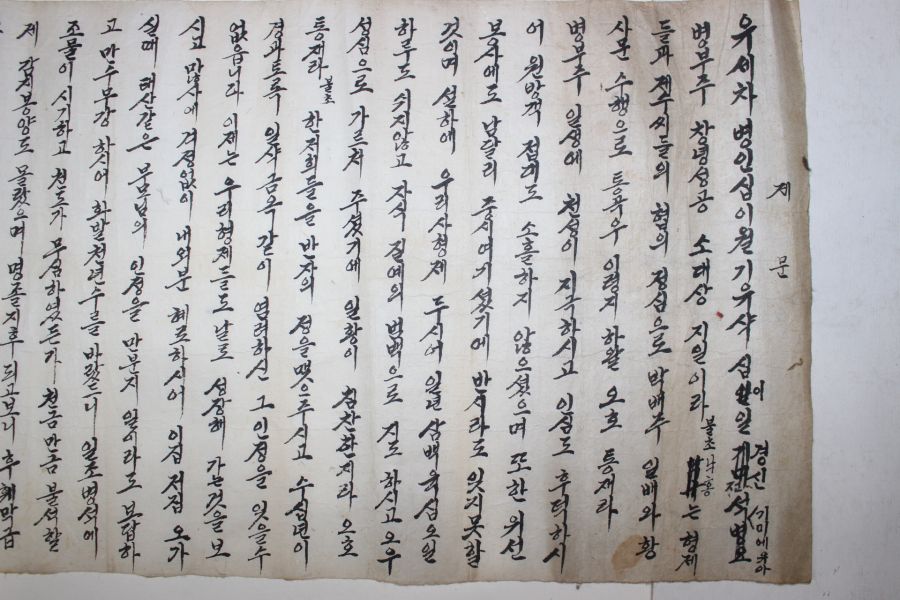 제 문
유세차 병인십이월 기유삭 십이일 경신
빙부주 창녕성공 소대상 지일이라 불초 는 형제
들과 제수씨들의 협의 정심으로 박배주 일배와 황
사문 수행으로 통곡우 이령지 하왈 오호 통재라
빙부주 일생에 천성이 지극하시고 인심도 후덕하시
어 원방객 접대도 소홀하지 않으셨으며 또한 위선
봉사에도 남달리 중시여기셨기에 반시라도 잊지못할
것이며 설하에 우리사형제 두시어 일년 삼백육십오일
하루도 쉬지않고 자식 질예의 범백으로 지도 하시고 오우
성심으로 가르쳐 주셨기에 일황이 점잔한지라 오호
통재라 불초 한저희들을 반자의 정을 맺으주시고 수십년이
경과토록 일사 금옥 같이 염려하신 그 인정을 잊을수
없읍니다 이제는 우리형제들도 날로 성장해 가는것을 보
시고 만사에 걱정없이 내외분 해로하시어 이집 저집 오가
실때 태산같은 부모님의 인정을 만분지 일이라도 보답하
고 만수무강 하시어 학발천년수를 바랐으니 일조 병석에
조물이 시기하고 천도가 무심하였든가 천금 만금 불석할
제 각제봉양도 몰랐으며 명졸지후 되고보니 후회막급